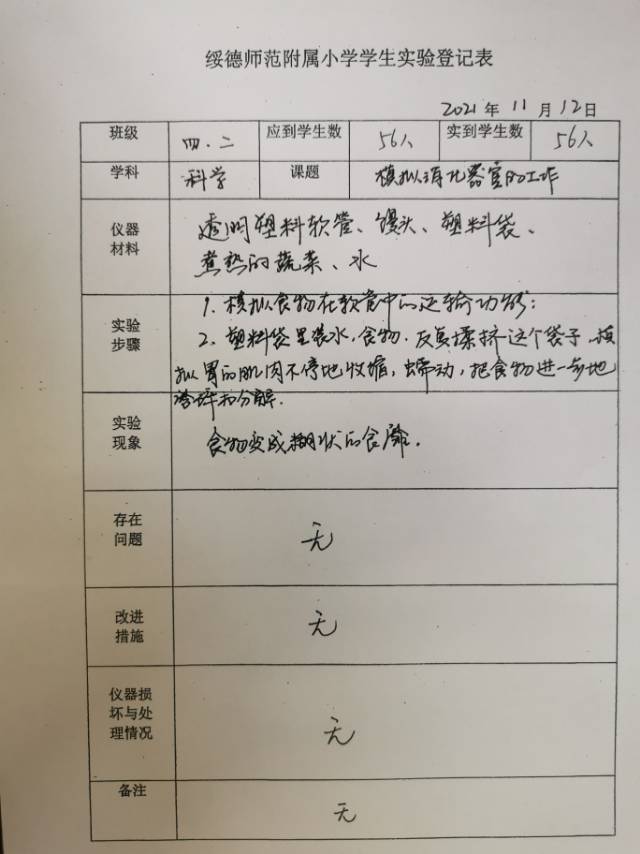 绥德师范附属小学学生实验登记表
2021 年 11 月 12 日
班级 四.二 应到学生数 56人 实到学生数 56人
学科 科学 课题 模拟消化器官的工作
仪器材料 透明塑料软管、馒头、塑料袋、
煮熟的蔬菜、水
实验步骤 1. 模拟食物在软管中的运输功能:
2. 塑料袋里装水,食物.反复揉挤这个袋子,模
拟胃的肌肉不停地收缩,蠕动,把食物进一步地
和分解.
实验现象 食物变成糊状的食糜.
存在问题 无
改进措施 无
仪器损坏与处理情况 无
备注 无